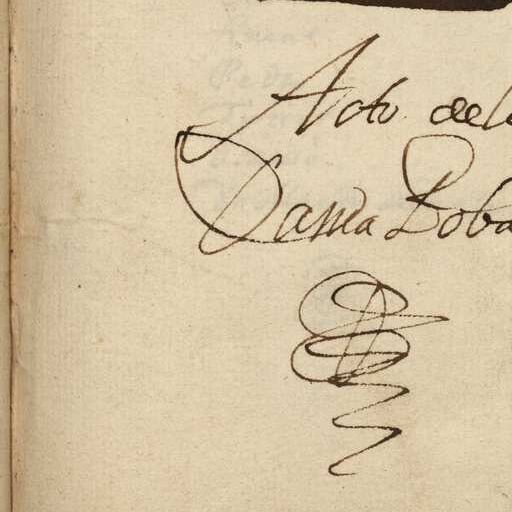 Acto dela
Dama Boba